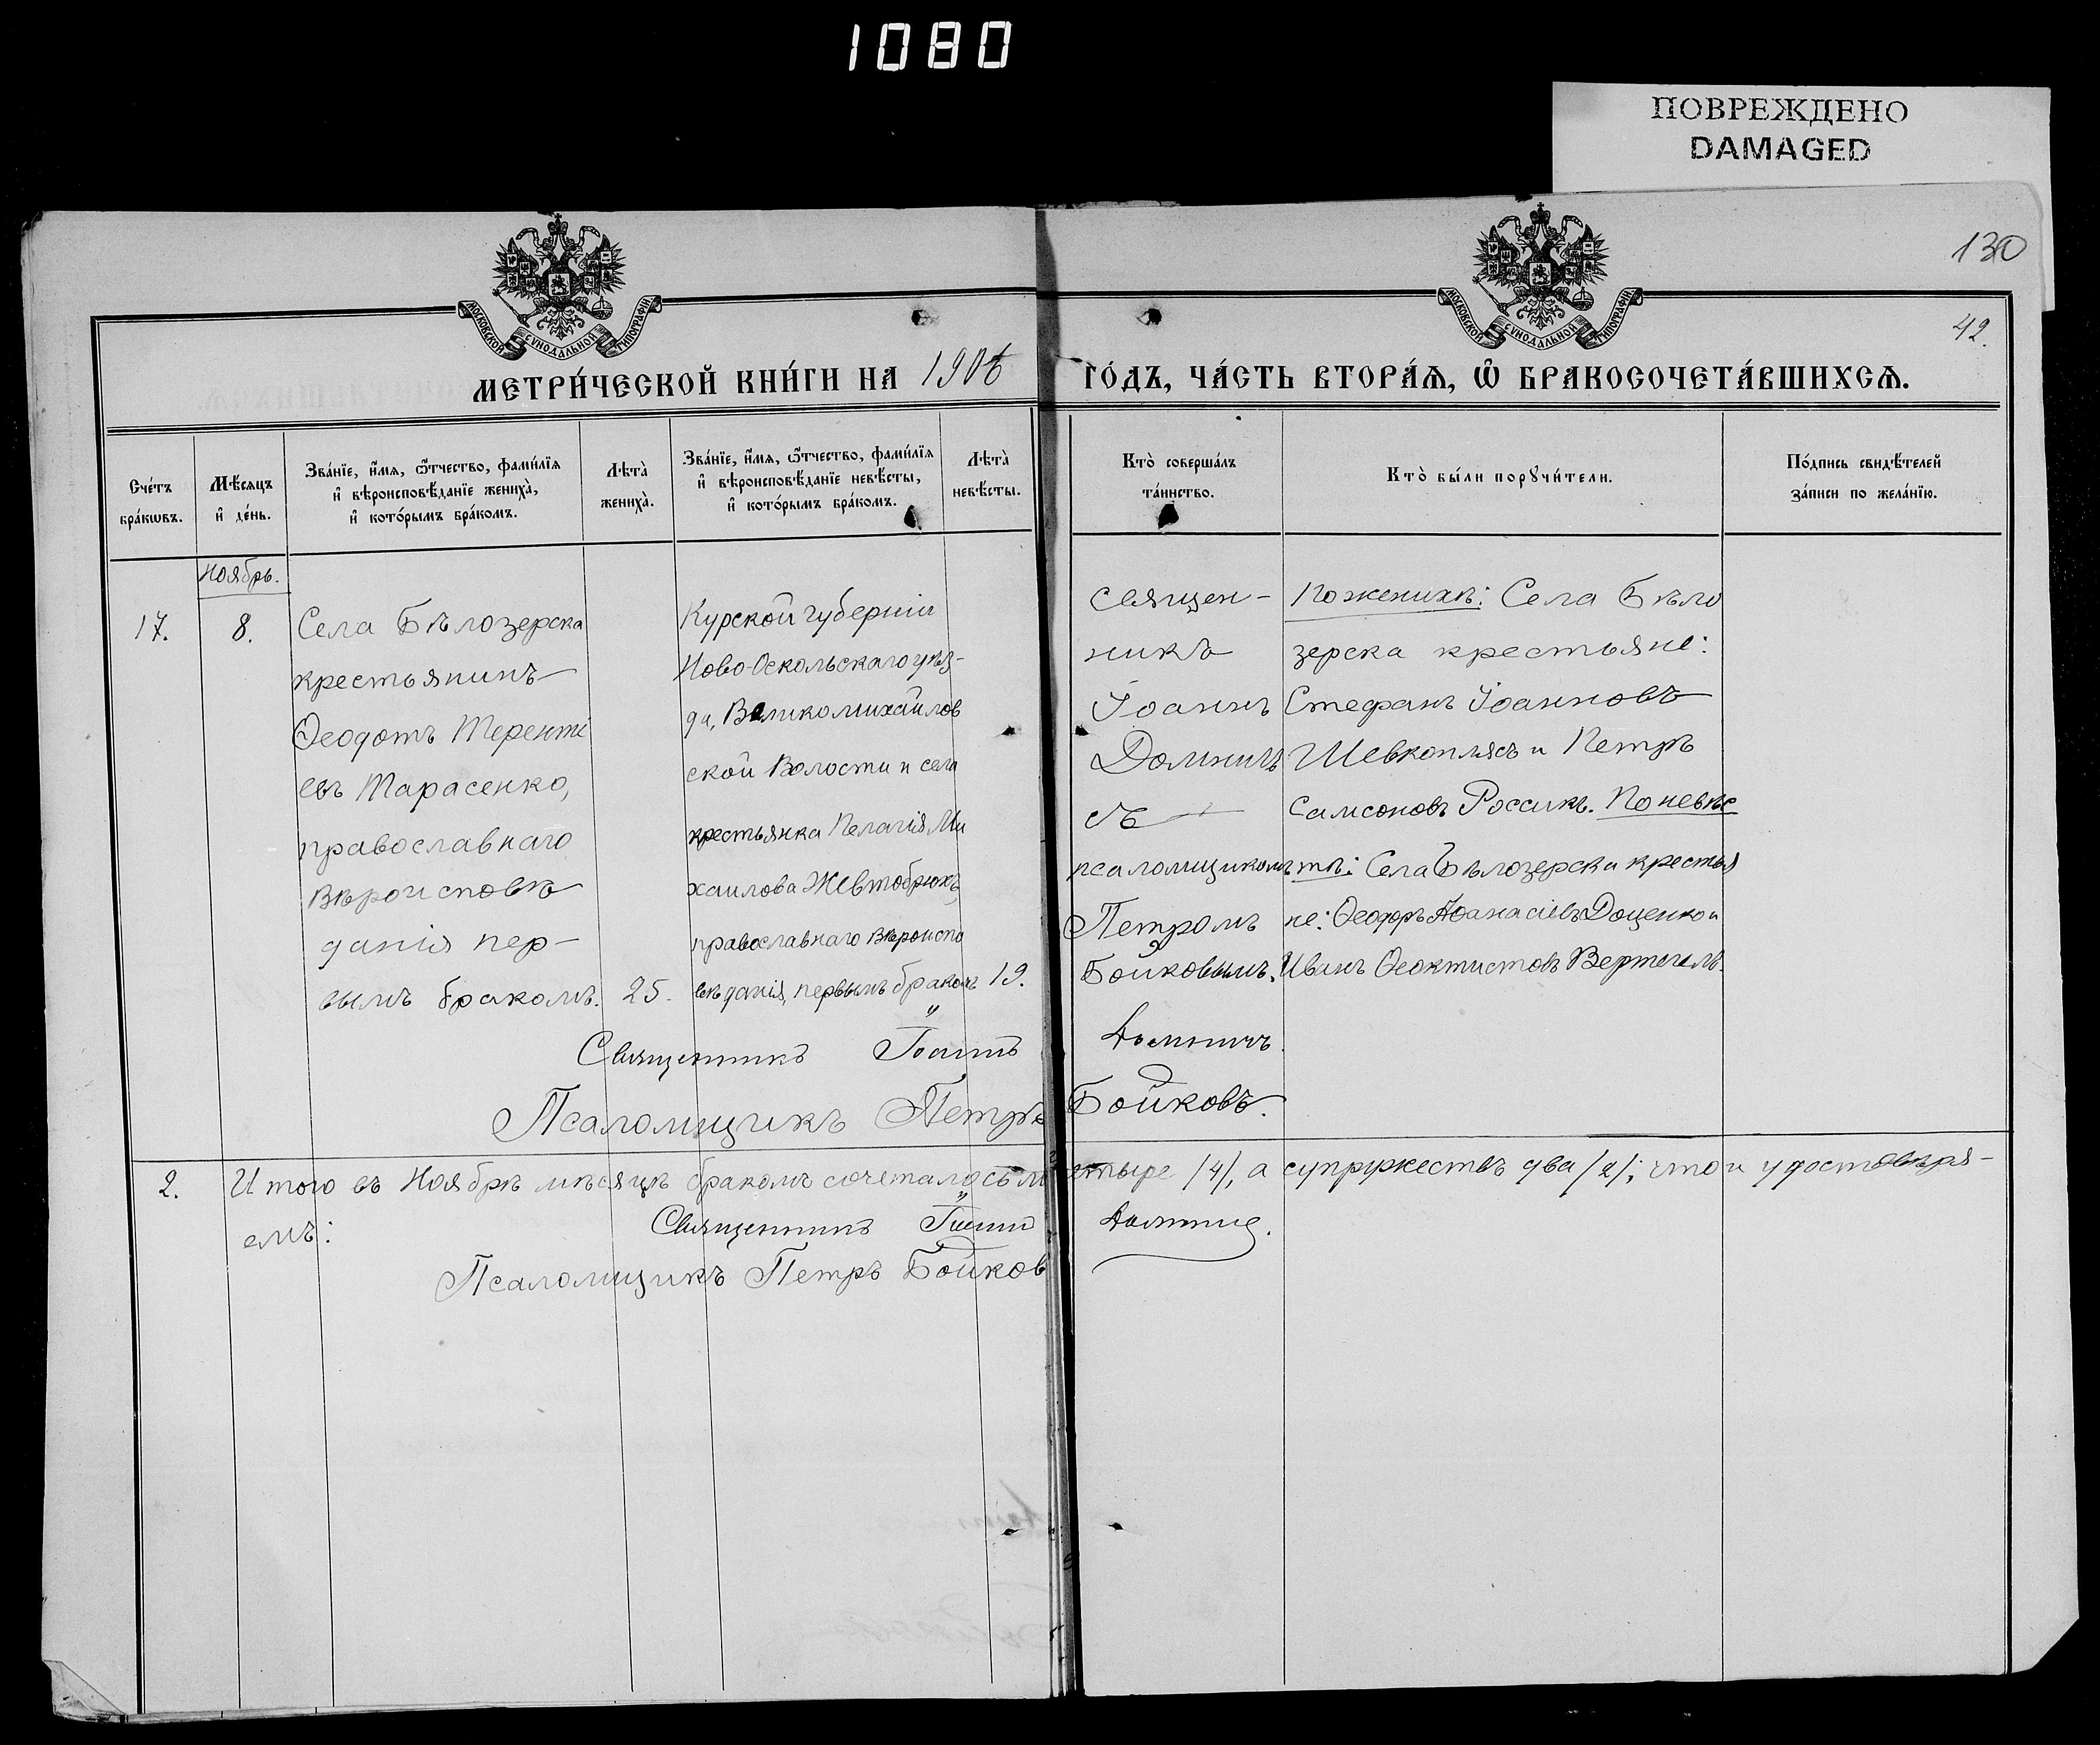 1080
ПОВРЕЖДЕНО
DAMAGED
130
42.
МОСКОВСКОЙ СѴНОДАЛЬНОЙ ТИПОГРАФІИ
МОСКОВСКОЙ СѴНОДАЛЬНОЙ ТИПОГРАФІИ
МЕТРИ́ЧЕСКОЙ КНИ́ГИ НА 1906 ГО́ДЪ, ЧА́СТЬ ВТОРА́Ѧ, Ѽ БРАКОСОЧЕТА́ВШИХСѦ.
Сче́тъ
бра́кѡвъ.
Мѣ́сѧцъ
и҆ де́нь.
Зва́нїе, и҆́мѧ, ѻ҆́тчество, фами́лїѧ
и҆ вѣроисповѣ́данїе жениха̀,
и҆ кото́рымъ бра́комъ.
Лѣта̀
жениха̀.
Зва́нїе, и҆́мѧ, ѻ҆́тчество, фами́лїѧ
и҆ вѣроисповѣ́данїе невѣ́сты,
и҆ кото́рымъ бра́комъ.
Лѣта̀
невѣ́сты.
Кто̀ соверша́лъ
та́инство.
Кто̀ бы́ли порꙋчи́тели.
По́дпись свидѣ́телей
за́писи по жела́нїю.
Ноябрь.
17.
8.
Села Бѣлозерска
крестьянинъ
Ѳеодотъ Теренті
евъ Тарасенко,
православнаго
вѣроисповѣ
данія пер-
вымъ бракомъ.
25.
Курской губерніи
Ново-Оскольскаго уѣз-
да, Великомихайлов
ской Волости и села
крестьянка Пелагія Ми
хаилова Жевтобрюхъ,
православнаго вѣроиспо
вѣданія, первымъ бракомъ
19.
Священ-
никъ
Іоаннъ
Домнич
съ
псаломщикомъ
Петромъ
Бойковымъ.
По женихѣ: Села Бѣло
зерска крестьяне:
Стефанъ Іоанновъ
Шевкоплясъ и Петръ
Самсоновъ Россикъ. По невѣс
тѣ: Села Бѣлозерска крестья
не: Ѳеодоръ Аѳанасіевъ Доценко и
Иванъ Ѳеоктистовъ Вертегелъ.
Священникъ Іоаннъ Домничъ.
Псаломщикъ Петръ Бойковъ.
2. Итого въ Ноябрѣ мѣсяцѣ бракомъ сочеталось четыре /4/, а супружествъ два /2/; что и удостовѣря-
емъ:
Священникъ Іоаннъ Домнич.
Псаломщикъ Петръ Бойков